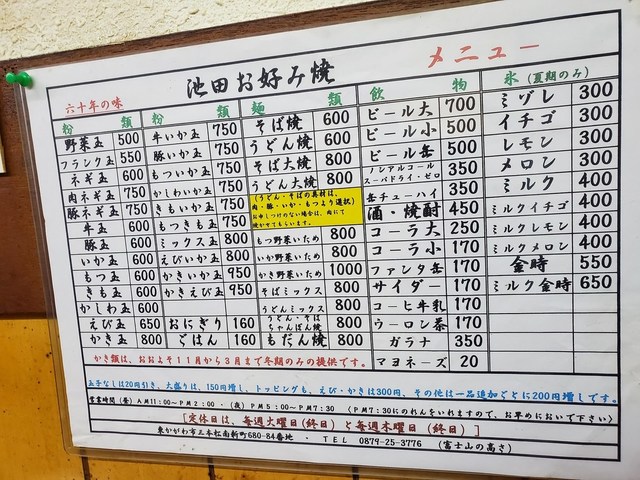 池田お好み焼
メニュー
六十年の味
粉類
野菜玉 500
フランク玉 550
ネギ玉 600
肉ネギ玉 750
豚ネギ玉 750
牛玉 600
豚玉 600
いか玉 600
もつ玉 600
きも玉 600
かしわ玉 600
えび玉 650
かき玉 800
粉類
牛いか玉 750
豚いか玉 750
もついか玉 750
かしわいか玉 750
きもいか玉 750
もつきも玉 750
ミックス玉 800
えびいか玉 800
かきいか玉 950
かきえび玉 950
おにぎり 160
ごはん 160
麺類
そば焼 600
うどん焼 600
そば大焼 800
うどん大焼 800
(うどん・そばの具材は、
肉・豚・いか・もつより選択)
お申しつけのない場合は、肉にて
焼かせてもらいます。
もつ野菜いため 800
いか野菜いため 800
かき野菜いため 1000
そばミックス 800
うどんミックス 800
うどん・そば
ちゃんぽん焼 800
もだん焼 800
飲物
ビール大 700
ビール小 500
ビール缶 500
ノンアルコール
スーパドライ・ゼロ 350
缶チューハイ 350
酒・焼酎 450
コーラ大 250
コーラ小 170
ファンタ缶 170
サイダー 170
コーヒ牛乳 170
ウーロン茶 170
ガラナ 350
マヨネーズ 20
氷(夏期のみ)
ミゾレ 300
イチゴ 300
レモン 300
メロン 300
ミルク 400
ミルクイチゴ 400
ミルクレモン 400
ミルクメロン 400
金時 550
ミルク金時 650
かき類は、おおよそ11月から3月まで冬期のみの提供です。
玉子なしは20円引き、大盛りは、150円増し、トッピングも、えび・かきは300円、その他は一品追加ごとに200円増しです。
営業時間(昼)AM11:00~PM2:00・(夜)PM5:00~PM7:30 (PM7:30にのれんをいれますので、お早めにおいで下さい)
[定休日は、毎週火曜日(終日)と毎週木曜日(終日)]
東かがわ市三本松南新町680-84番地 ・ TEL 0879-25-3776 (富士山の高さ)